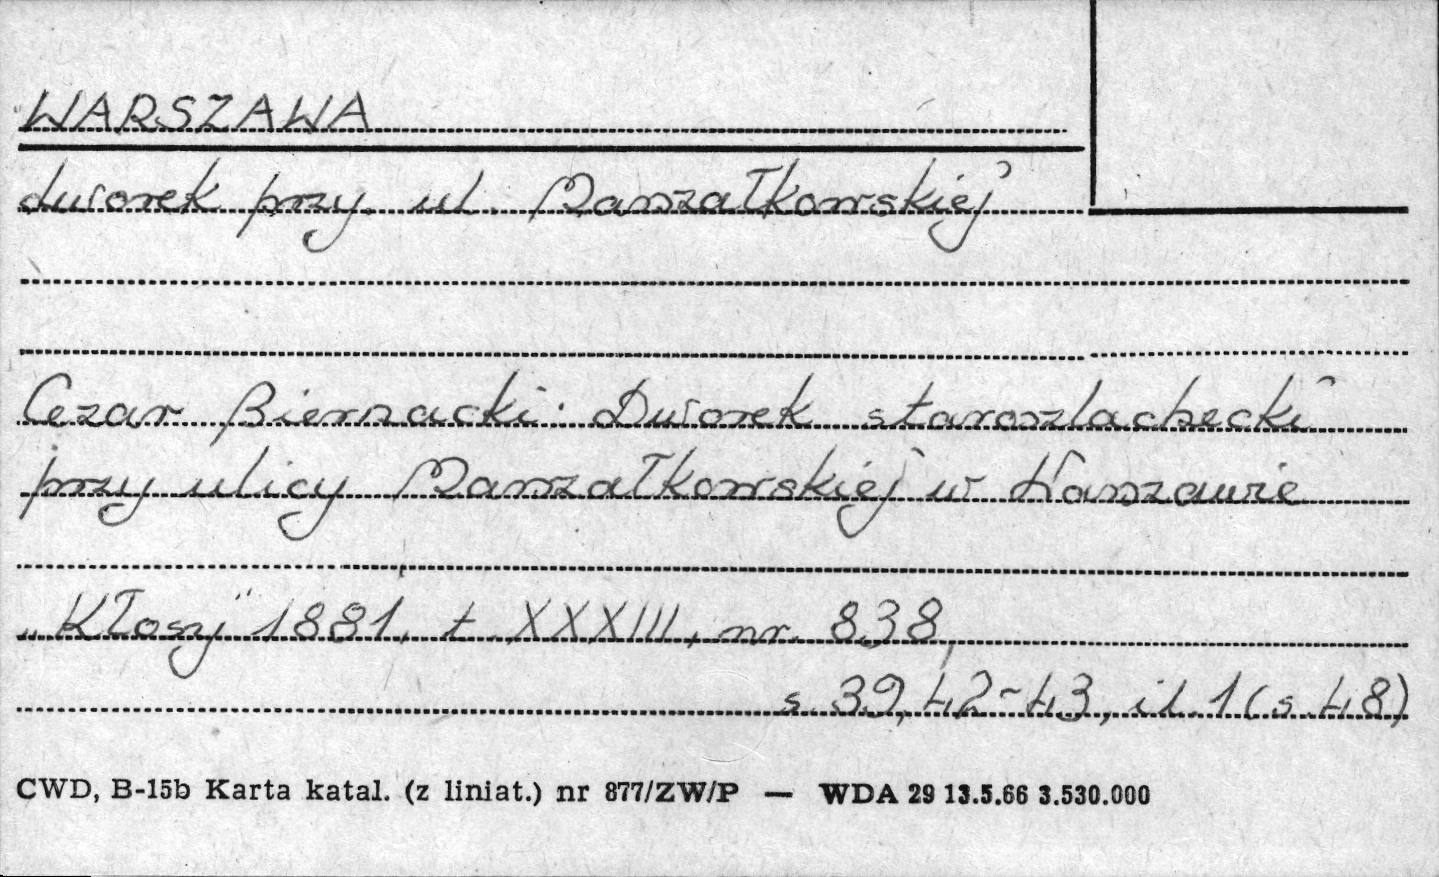 WARSZAWA
dworek przy ul. Marszałkowskiej
Cezar Biernacki: Dworek staroszlachecki
przy ulicy Marszałkowskiej w Warszawie
„Kłosy" 1881, t. XXXIII, nr. 838,
s. 39, 42-43, il. 1 (s. 48)
CWD, B-15b Karta katal. (z liniat.) nr 877/ZW/P — WDA 29 13.5.66 3.530.000